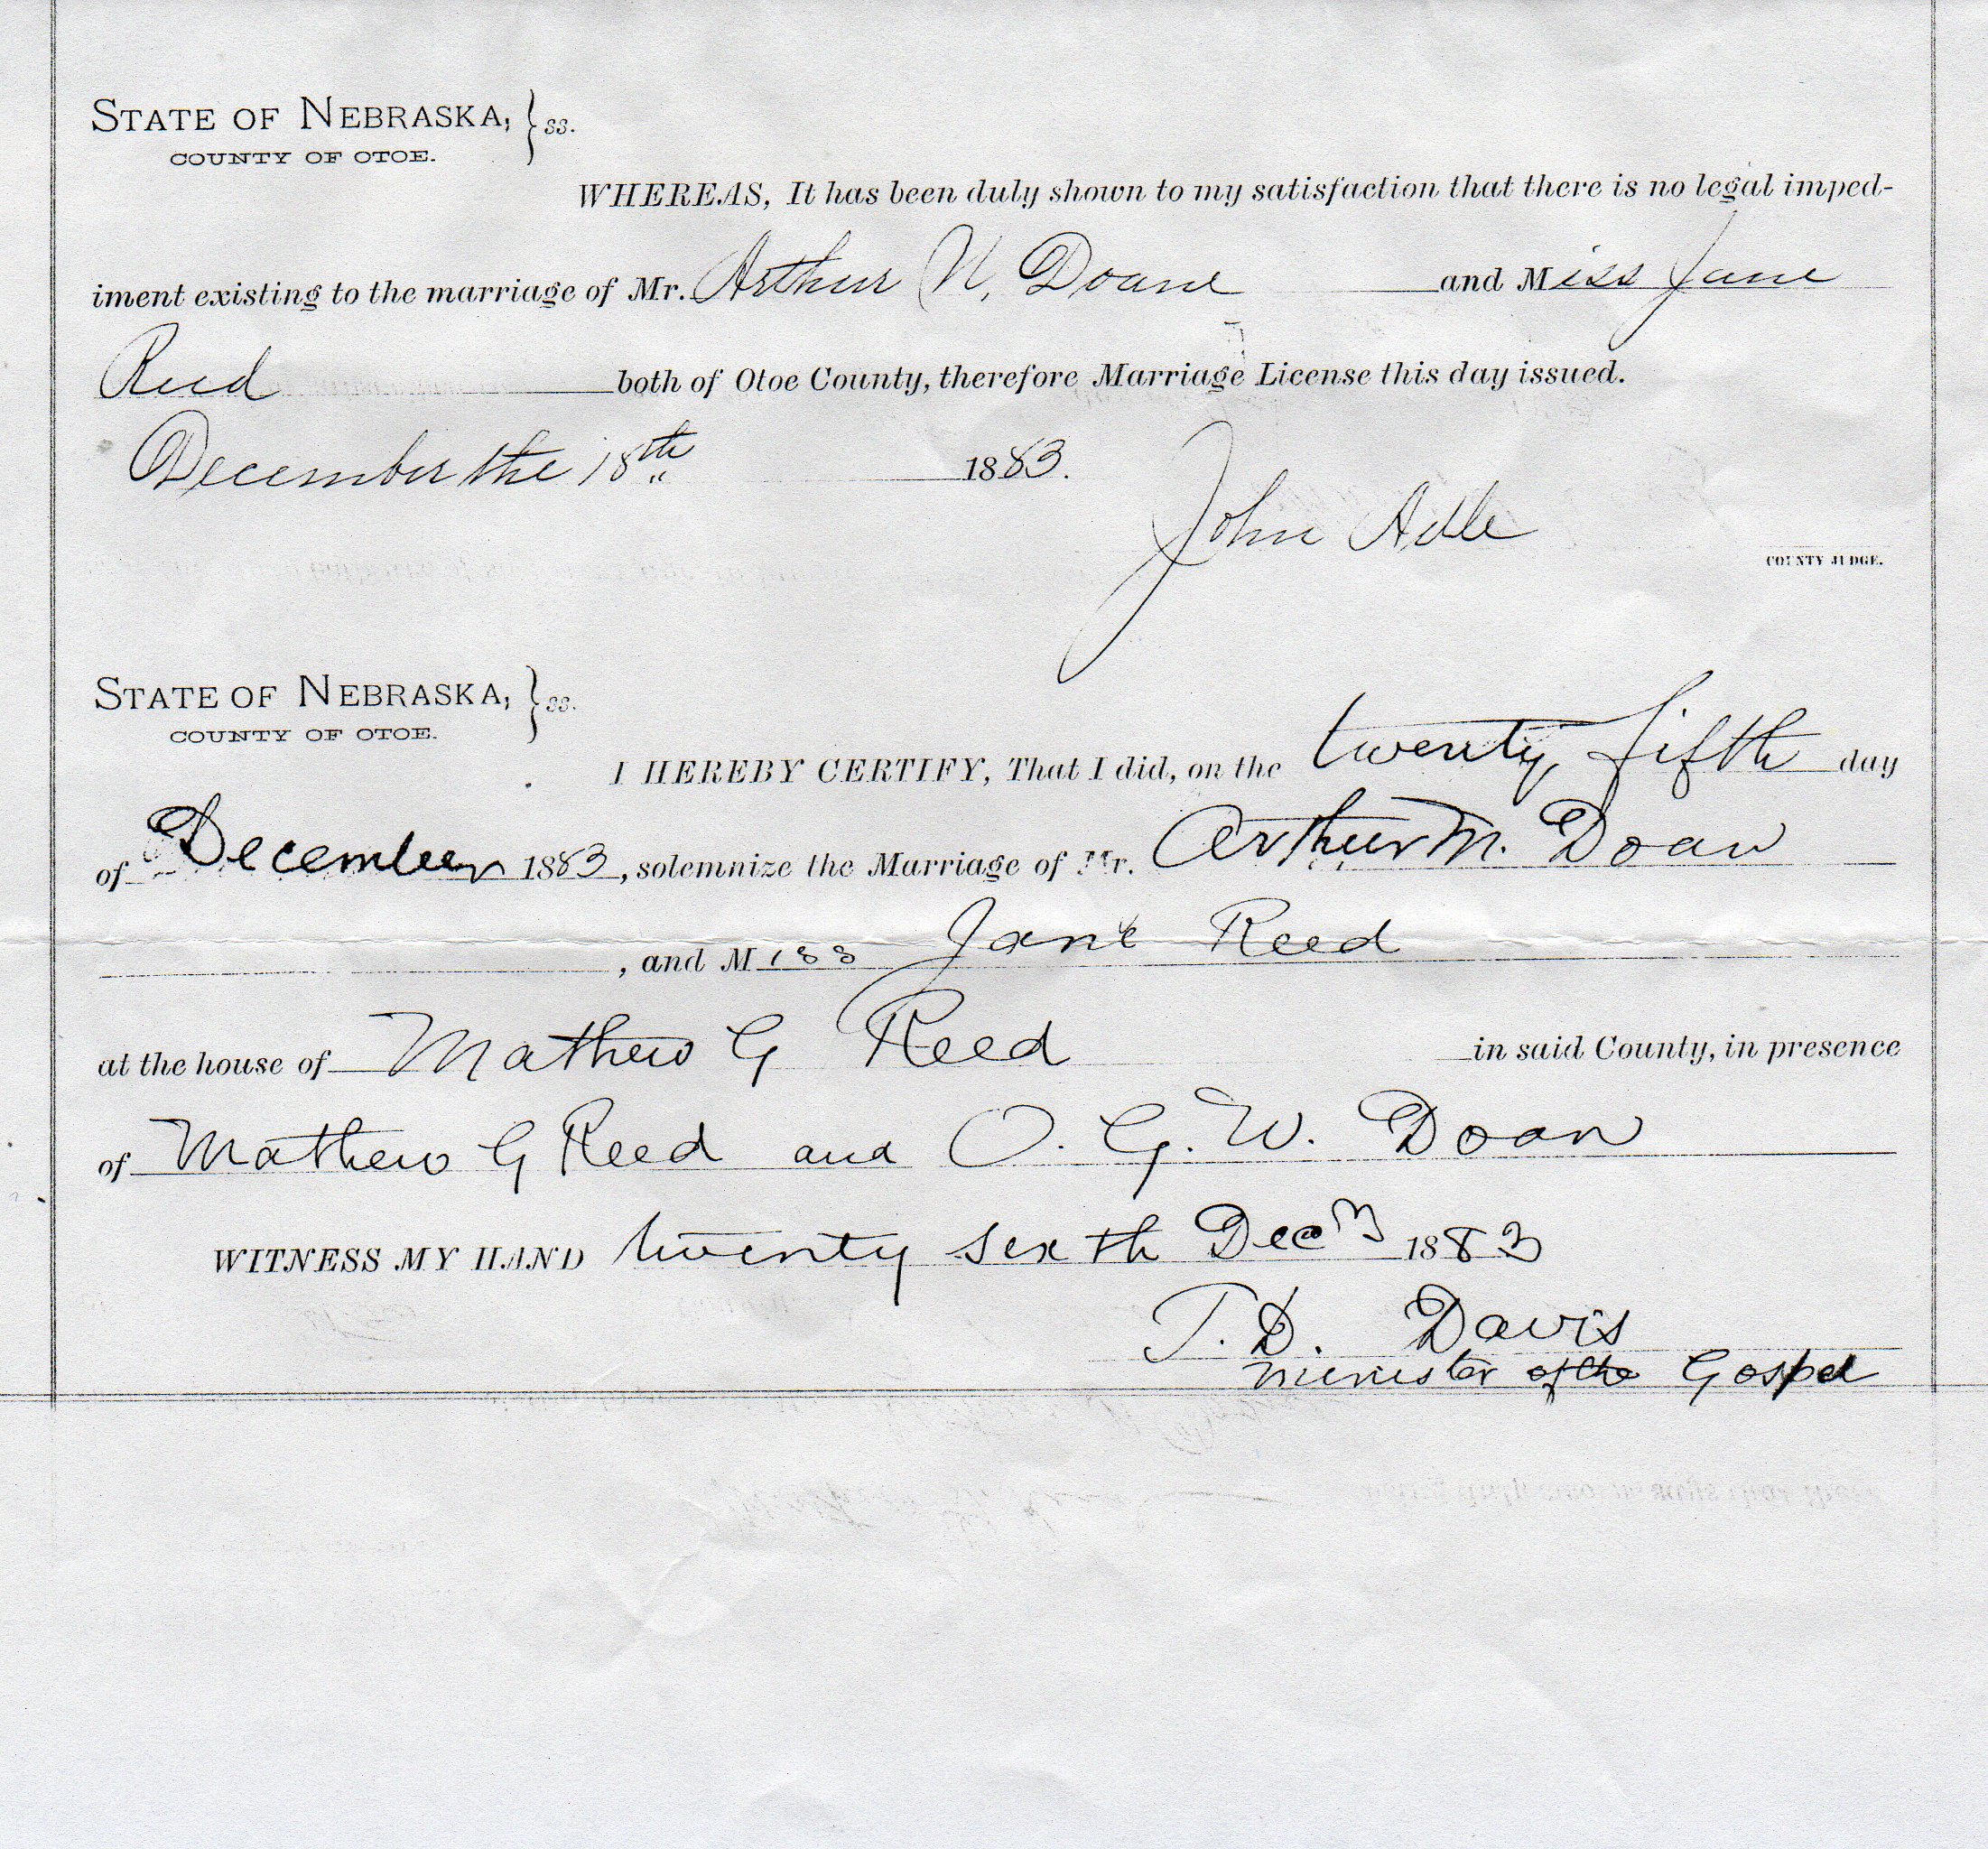 STATE OF NEBRASKA, } ss.
COUNTY OF OTOE.
WHEREAS, It has been duly shown to my satisfaction that there is no legal imped-
iment existing to the marriage of Mr. Arthur N. Doane and Miss Jane
Reed both of Otoe County, therefore Marriage License this day issued.
December the 18th 1883.
John
COUNTY JUDGE.
STATE OF NEBRASKA, } ss.
COUNTY OF OTOE.
I HEREBY CERTIFY, That I did, on the twenty fifth day
of December 1883, solemnize the Marriage of Mr. Arthur M. Doan
, and Miss Jane Reed
at the house of Mathew G Reed in said County, in presence
of Mathew G Reed and O. G. W. Doan
WITNESS MY HAND twenty sexth 1883
T. D. Davis
minister of the Gospel